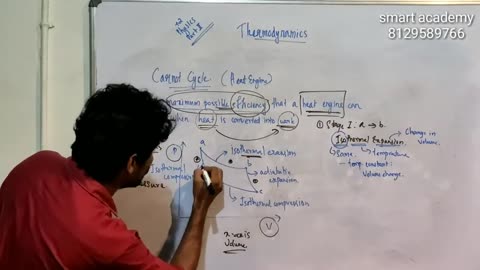 smart academy
8129589766
+2
Physics
Part II
Thermodynamics
Carnot Cycle (Heat Engine)
maximum possible efficiency that a heat engine can
when heat is converted into work
① Stage I: a → b.
Isothermal Expansion
Change in
volume.
Same
temperature
temp constant;
volume change.
a
Isothermal expansion
b
adiabatic
expansion
c
Isothermal compression
Isothermal
compression
V
x-axis
Volume